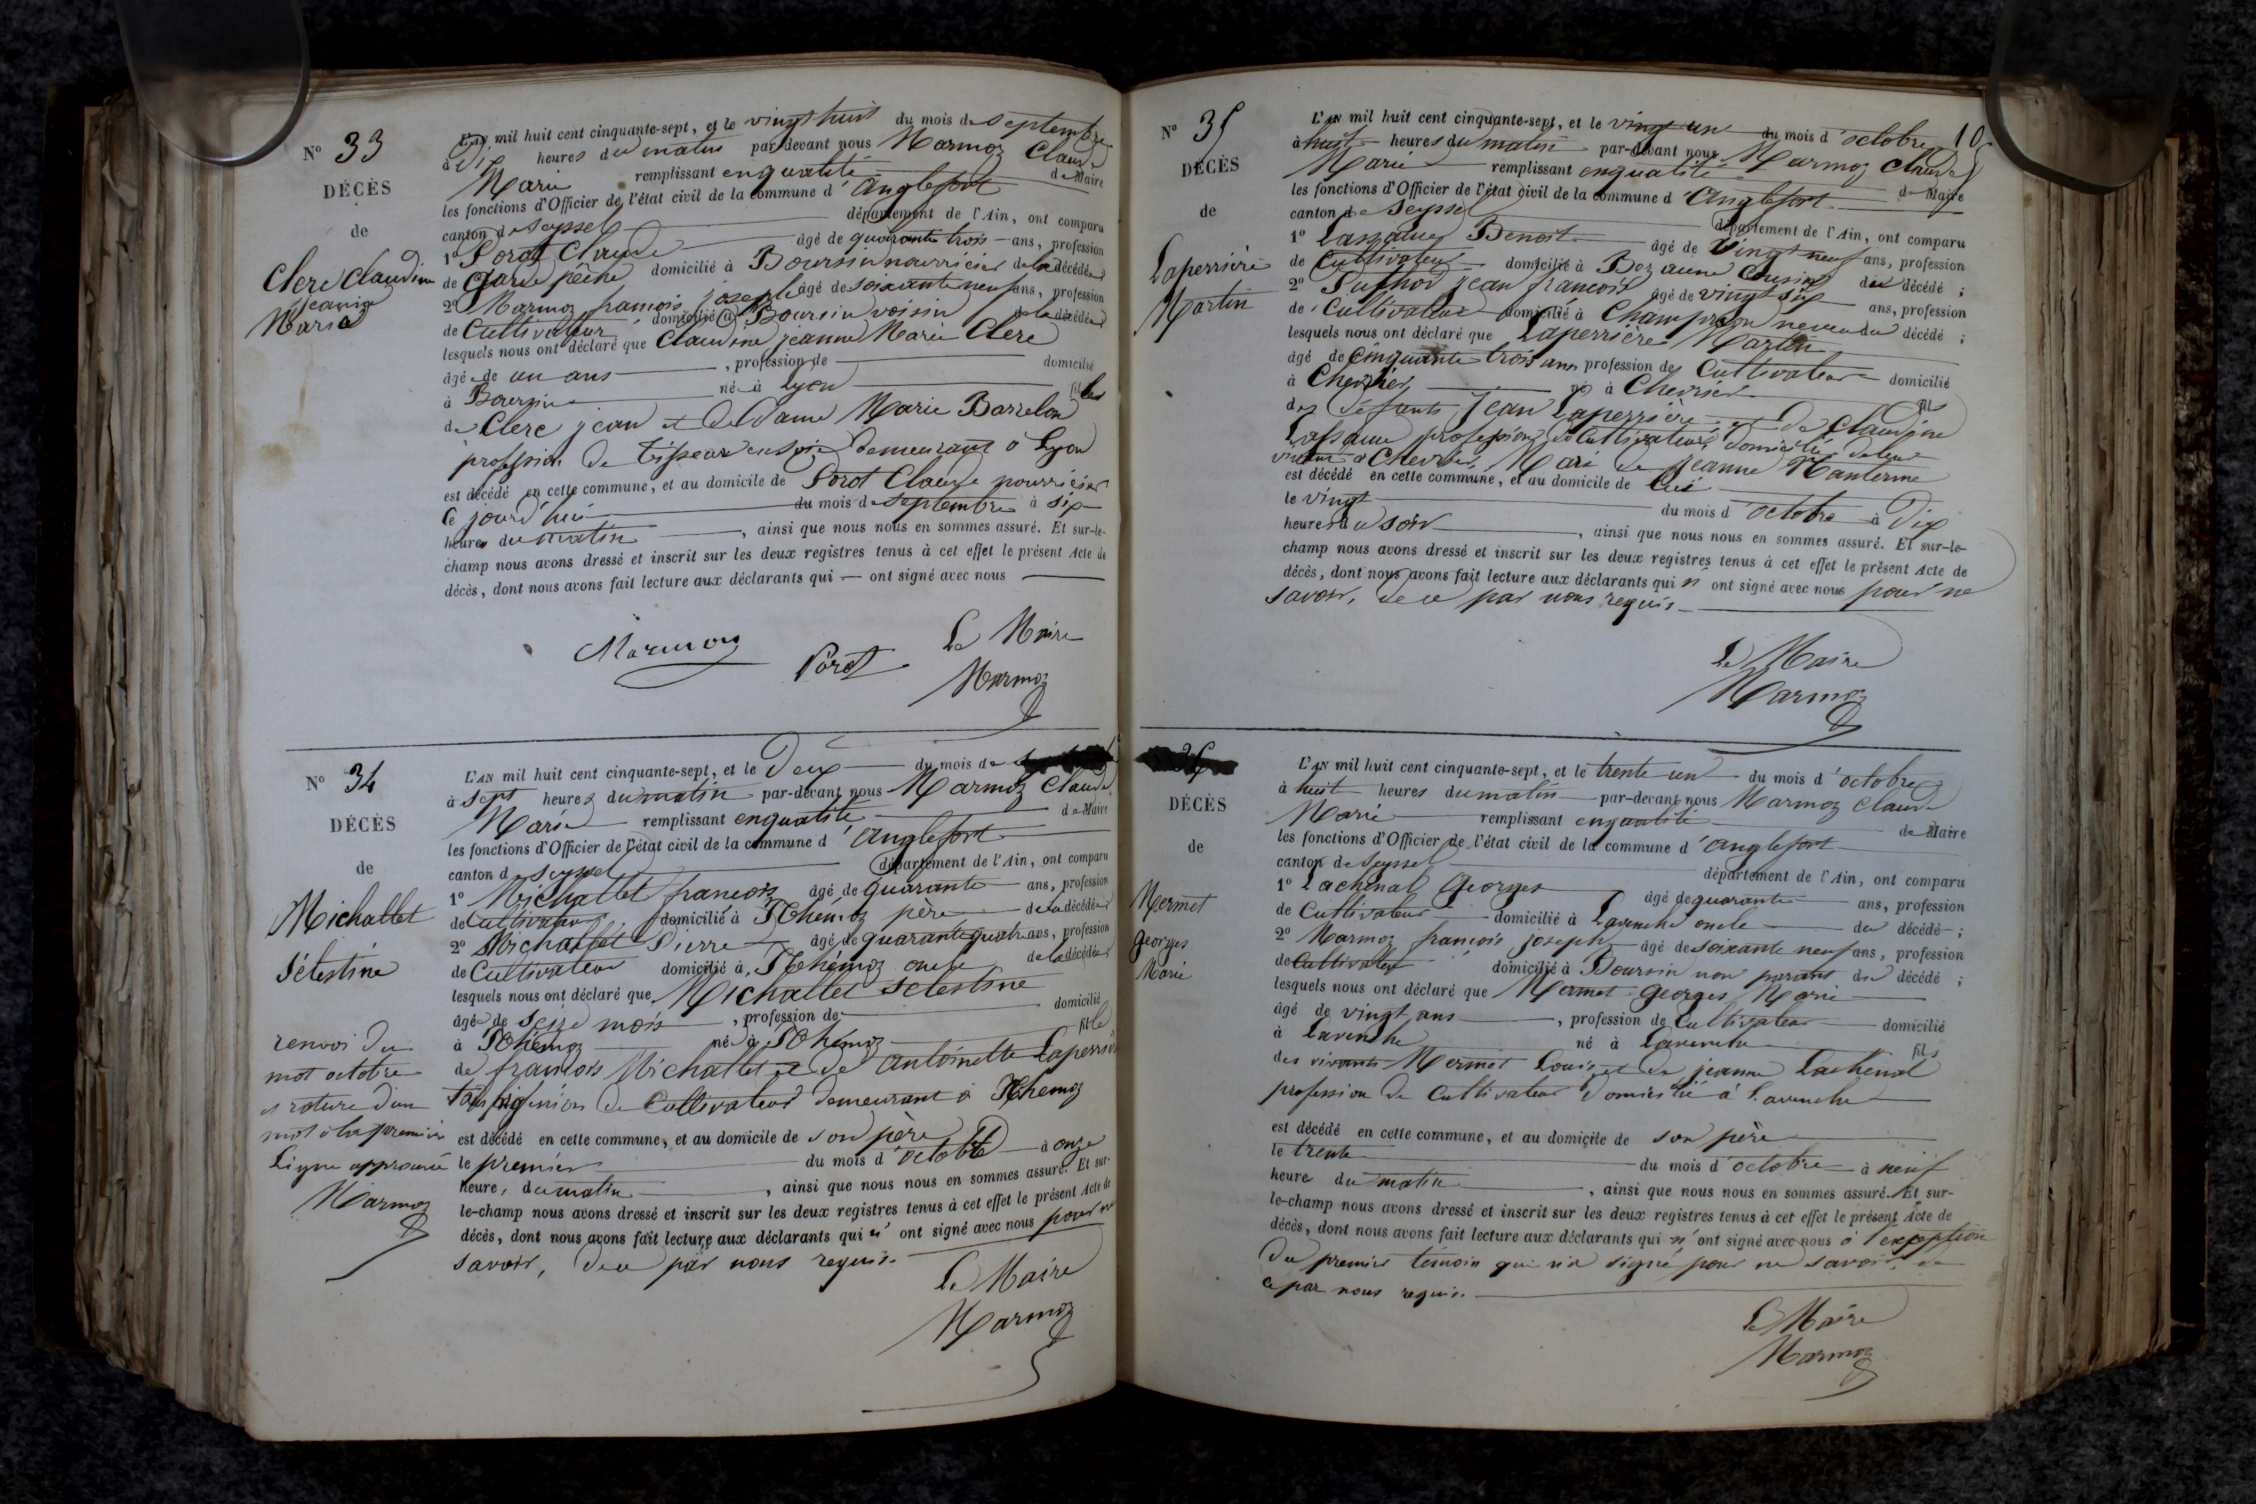 N° 33
DÉCÈS
de
Clerc Claudine
jeanne
Marie
L'AN mil huit cent cinquante-sept, et le vingt huit du mois de septembre
à Dix heures du matin par-devant nous Marmoz Claude
Marie remplissant en qualité de Maire
les fonctions d'Officier de l'état civil de la commune d'anglefort
canton de Seyssel département de l'Ain, ont comparu
1° Porot Claude âgé de quarante trois ans, profession
de garde pêche domicilié à Boursin nourricier de la décédée
2° Marmoz francois joseph âgé de soixante neuf ans, profession
de Cultivateur domicilié à Boursin voisin de la décédée
lesquels nous ont déclaré que Claudine jeanne Marie Clerc
âgée de un ans , profession de domicilié
à Boursin née à Lyon fille
de Clerc jean et de dame Marie Barrelon
profession de tisseur en soie demeurant à Lyon
est décédé en cette commune, et au domicile de Porot Claude nourricier
Ce jourd'hui du mois de septembre à six
heures du matin , ainsi que nous nous en sommes assuré. Et sur-le-
champ nous avons dressé et inscrit sur les deux registres tenus à cet effet le présent Acte de
décès, dont nous avons fait lecture aux déclarants qui — ont signé avec nous
Marmoz Porot Le Maire
Marmoz
N° 34
DÉCÈS
de
Michallet
Sélestine
renvoi du
mot octobre
et rature d'un
mot à la premiere
Ligne approuvée
Marmoz
L'AN mil huit cent cinquante-sept, et le Deux du mois de
à sept heures du matin par-devant nous Marmoz Claude
Marie remplissant en qualité de Maire
les fonctions d'Officier de l'état civil de la commune d'anglefort
canton de Seyssel département de l'Ain, ont comparu
1° Michallet francois âgé de quarante ans, profession
de Cultivateur domicilié à Thémoz père de la décédée
2° Michallet Pierre âgé de quarante quatre ans, profession
de Cultivateur domicilié à Thémoz oncle de la décédée
lesquels nous ont déclaré que Michallet Sélestine
âgée de seize mois , profession de domicilié
à Thémoz née à Thémoz fille
de francois Michallet et de antoinette
de Cultivateur demeurant à Thémoz
est décédé en cette commune, et au domicile de son père
le premier du mois d'octobre à onze
heure, du matin , ainsi que nous nous en sommes assuré. Et sur-
le-champ nous avons dressé et inscrit sur les deux registres tenus à cet effet le présent Acte de
décès, dont nous avons fait lecture aux déclarants qui n' ont signé avec nous pour ne
savoir, de ce par nous requis.
Le Maire
Marmoz
10
N° 35
DÉCÈS
de
Laperrière
Martin
L'AN mil huit cent cinquante-sept, et le vingt un du mois d'octobre
à huit heures du matin par-devant nous Marmoz Claude
Marie remplissant en qualité de Maire
les fonctions d'Officier de l'état civil de la commune d'Anglefort
canton de Seyssel département de l'Ain, ont comparu
1° Lassalue Benoit âgé de Vingt neuf ans, profession
de Cultivateur domicilié à Bezaume Cousin du décédé ;
2° jean francois âgé de vingt six ans, profession
de Cultivateur domicilié à neveu du décédé ;
lesquels nous ont déclaré que Laperrière Martin
âgé de cinquante trois ans, profession de Cultivateur domicilié
à Chevrier né à Chevrier fils
des défunts jean Laperrière et de Claudine
profession de Cultivateurs domiciliés de leur
vivant à Chevrier, Mari de jeanne Nanterme
est décédé en cette commune, et au domicile de Lui
le vingt du mois d'octobre à Dix
heures du soir , ainsi que nous nous en sommes assuré. Et sur-le-
champ nous avons dressé et inscrit sur les deux registres tenus à cet effet le présent Acte de
décès, dont nous avons fait lecture aux déclarants qui n' ont signé avec nous pour ne
savoir, de ce par nous requis.
Le Maire
Marmoz
36
DÉCÈS
de
Mermet
Georges
Marie
L'AN mil huit cent cinquante-sept, et le trente un du mois d'octobre
à huit heures du matin par-devant nous Marmoz Claude
Marie remplissant en qualité de Maire
les fonctions d'Officier de l'état civil de la commune d'anglefort
canton de Seyssel département de l'Ain, ont comparu
1° Lachenal Georges âgé de quarante ans, profession
de Cultivateur domicilié à Lavenche oncle du décédé ;
2° Marmoz francois joseph âgé de soixante neuf ans, profession
de Cultivateur domicilié à Boursin non parent du décédé ;
lesquels nous ont déclaré que Mermet Georges Marie
âgé de vingt ans , profession de Cultivateur domicilié
à Lavenche né à Lavenche fils
des vivants Mermet Louis et de jeanne Lachenal
profession de Cultivateur domicilié à Lavenche
est décédé en cette commune, et au domicile de son père
le trente du mois d'octobre à neuf
heure du matin , ainsi que nous nous en sommes assuré. Et sur-
le-champ nous avons dressé et inscrit sur les deux registres tenus à cet effet le présent Acte de
décès, dont nous avons fait lecture aux déclarants qui n' ont signé avec nous à l'exception
du premier témoin qui n'a signé pour ne savoir de
ce par nous requis.
Le Maire
Marmoz